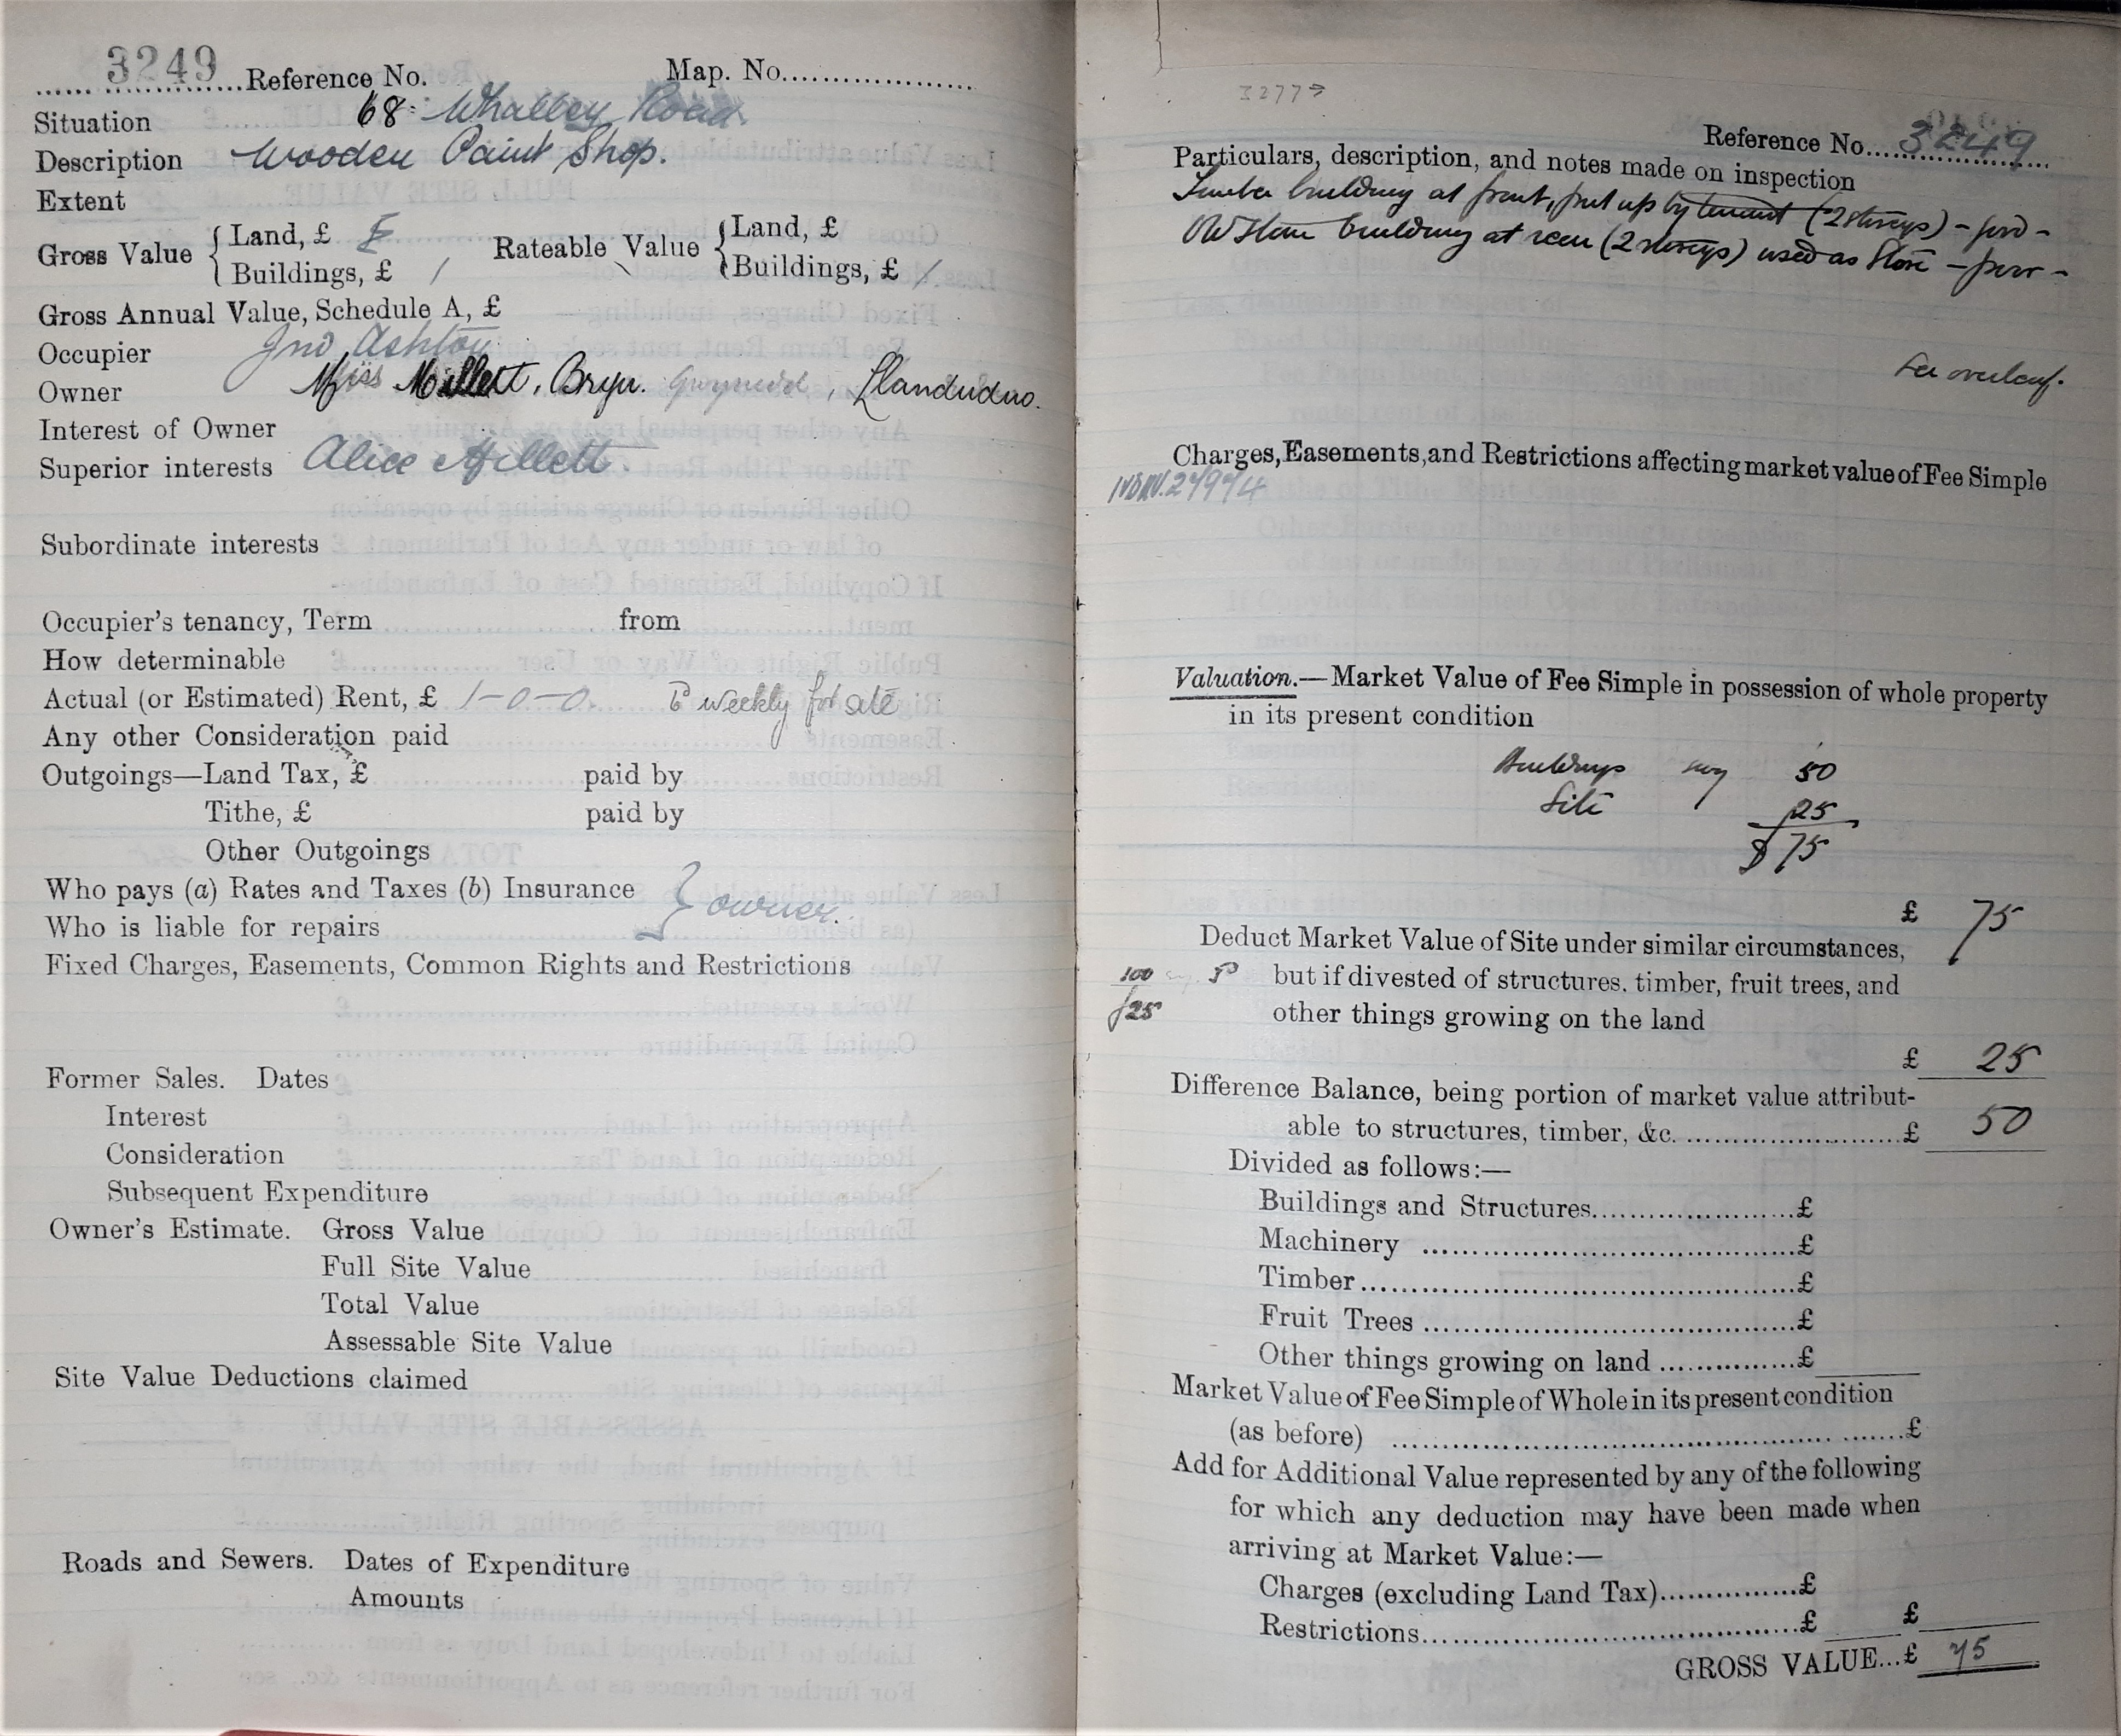 3249 Reference No. Map. No.
Situation 68 Whalley Road.
Description Wooden Paint Shop.
Extent
Gross Value { Land, £ Rateable Value { Land, £
Buildings, £ 1 Buildings, £ 1.
Gross Annual Value, Schedule A, £
Occupier Jno Ashton
Owner Miss Millett, Bryn. Gwynedd, Llandudno.
Interest of Owner
Superior interests Alice Millett.
Subordinate interests
Occupier's tenancy, Term from
How determinable
Actual (or Estimated) Rent, £ 1-0-0. weekly for site
Any other Consideration paid
Outgoings—Land Tax, £ paid by
Tithe, £ paid by
Other Outgoings
Who pays (a) Rates and Taxes (b) Insurance } owner.
Who is liable for repairs
Fixed Charges, Easements, Common Rights and Restrictions
Former Sales. Dates
Interest
Consideration
Subsequent Expenditure
Owner's Estimate. Gross Value
Full Site Value
Total Value
Assessable Site Value
Site Value Deductions claimed
Roads and Sewers. Dates of Expenditure
Amounts
3277
Reference No. 3249
Particulars, description, and notes made on inspection
Timber building at front, put up by tenant (2 storeys) -
Old Stone building at rear (2 storeys) used as Store - poor -
See overleaf.
Charges, Easements, and Restrictions affecting market value of Fee Simple
Valuation.—Market Value of Fee Simple in possession of whole property
in its present condition
Buildings say 50
Site 25
£ 75
£ 75
Deduct Market Value of Site under similar circumstances,
100 but if divested of structures. timber, fruit trees, and
£25 other things growing on the land
£ 25
Difference Balance, being portion of market value attribut-
able to structures, timber, &c. £ 50
Divided as follows:—
Buildings and Structures £
Machinery £
Timber £
Fruit Trees £
Other things growing on land £
Market Value of Fee Simple of Whole in its present condition
(as before) £
Add for Additional Value represented by any of the following
for which any deduction may have been made when
arriving at Market Value:—
Charges (excluding Land Tax) £
Restrictions £ £
GROSS VALUE...£ 75